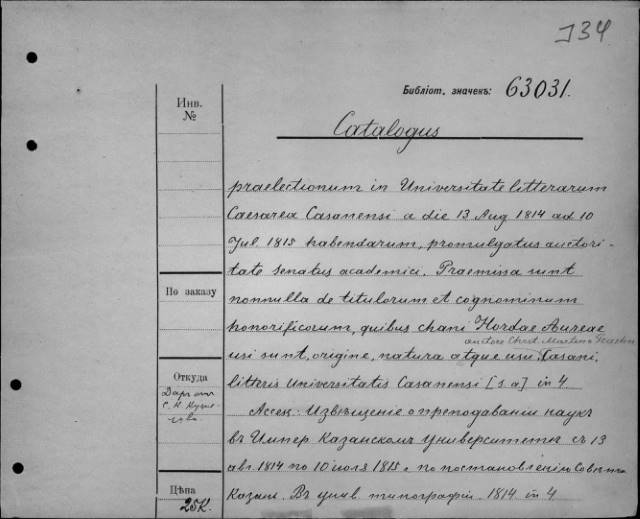 J34
Библіот. значекъ: 63031.
Инв.
№
Catalogus
praelectionum in Universitate litterarum
Caesarea Casanensi a die 13 Aug 1814 ad 10
Jul. 1815 habendarum, promulgatus auctori-
tate senatus academici. Praemina sunt
По заказу
nonnulla de titulorum et cognominum
honorificorum, quibus chani Hordae Aureae
auctore Christ. Martino
usi sunt, origine, natura atque usu. Casani,
Откуда
litteris Universitatis Casanensi [s a] in 4.
Даръ отъ
Ассец: Извѣщеніе о преподаваніи наукъ
въ Импер Казанскомъ Университетѣ съ 13
авг. 1814 по 10 іюля 1815 по постановленію Совѣта
Цѣна
25К.
Казань. Въ унив. типографіи. 1814 in 4